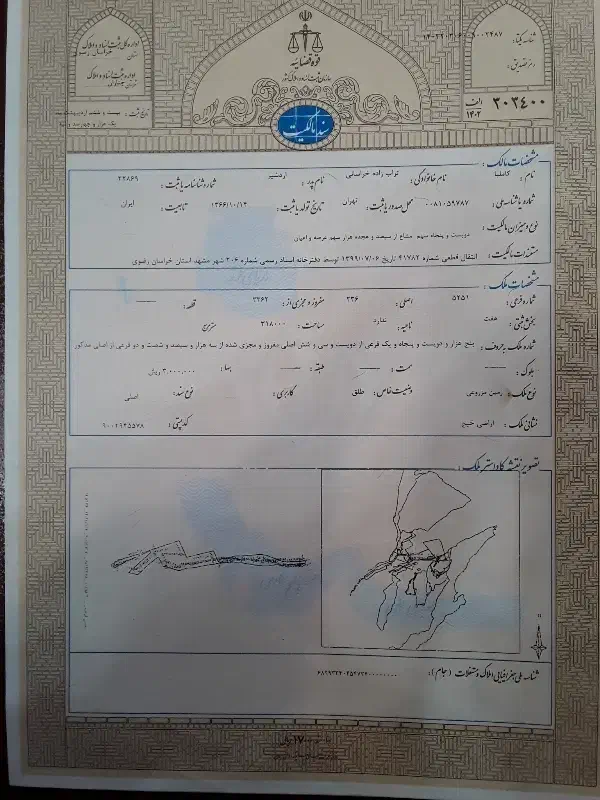 قوه قضائیه
سازمان ثبت اسناد و املاک کشور
اداره کل ثبت اسناد و املاک
استان خراسان رضوی
اداره ثبت اسناد و املاک
شناسه یکتا:
رمز تصدیق:
۲۰۳۴۰۰ الف
۱۴۰۲
تاریخ ثبت:
سند مالکیت
مشخصات مالک:
نام: کاملیا نام خانوادگی: تواب زاده خراسانی نام پدر: اردشیر شماره شناسنامه یا ثبت: ۲۲۸۶۹
شماره یا شناسه ملی: ۰۰۸۱۰۵۹۷۸۷ محل صدور یا ثبت: تهران تاریخ تولد یا ثبت: ۱۳۶۶/۱۰/۱۴ تابعیت: ایران
نوع و میزان مالکیت: دویست و پنجاه سهم مشاع از سیصد و هجده هزار سهم عرصه و اعیان
مستندات مالکیت: انتقال قطعی شماره ۴۱۷۸۲ تاریخ ۱۳۹۹/۰۷/۰۶ توسط دفترخانه اسناد رسمی شماره ۲۰۶ شهر مشهد استان خراسان رضوی
مشخصات ملک:
شماره فرعی: ۵۲۵۱ اصلی: ۲۳۶ مفروز و مجزی از: ۳۳۶۲ قطعه:
بخش ثبتی: هفت ناحیه: ندارد مساحت: ۳۱۸۰۰۰ مترمربع
شماره ملک به حروف: پنج هزار و دویست و پنجاه و یک فرعی از دویست و سی و شش اصلی مفروز و مجزی شده از سه هزار و سیصد و شصت و دو فرعی از اصلی مذکور
بلوک: سمت: طبقه: بهاء: ۳.۰۰۰.۰۰۰ ریال
نوع ملک: زمین مزروعی وضعیت خاص: طلق کاربری: نوع سند: اصلی
نشانی ملک: اراضی خیج کدپستی: ۹۰۰۲۹۴۵۵۷۸
تصویر نقشه کاداستر ملک:
شناسه ملی جغرافیایی املاک و مستغلات (جام):